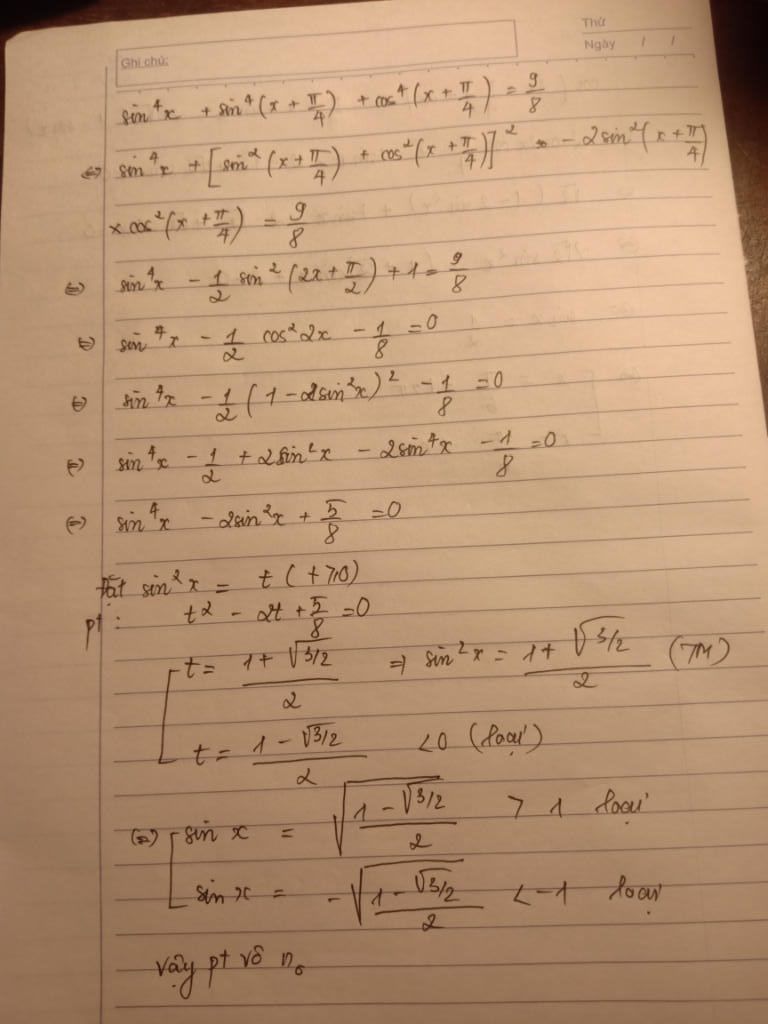 Thứ
Ghi chú:
Ngày / /
sin⁴x + sin⁴(x + π/4) + cos⁴(x + π/4) = 9/8
⇔ sin⁴x + [sin²(x + π/4) + cos²(x + π/4)]² - 2sin²(x + π/4)
× cos²(x + π/4) = 9/8
⇔ sin⁴x - 1/2 sin²(2x + π/2) + 1 = 9/8
⇔ sin⁴x - 1/2 cos²2x - 1/8 = 0
⇔ sin⁴x - 1/2 (1 - 2sin²x)² - 1/8 = 0
⇔ sin⁴x - 1/2 + 2sin²x - 2sin⁴x - 1/8 = 0
⇔ sin⁴x - 2sin²x + 5/8 = 0
Đặt sin²x = t (t ≥ 0)
pt: t² - 2t + 5/8 = 0
[ t = (1 + √(3/2))/2 ⇒ sin²x = (1 + √(3/2))/2 (TM)
t = (1 - √(3/2))/2 < 0 (loại)
⇔ [ sin x = √((1 - √(3/2))/2) > 1 loại
sin x = -√((1 - √(3/2))/2) < -1 loại
Vậy pt vô n₀